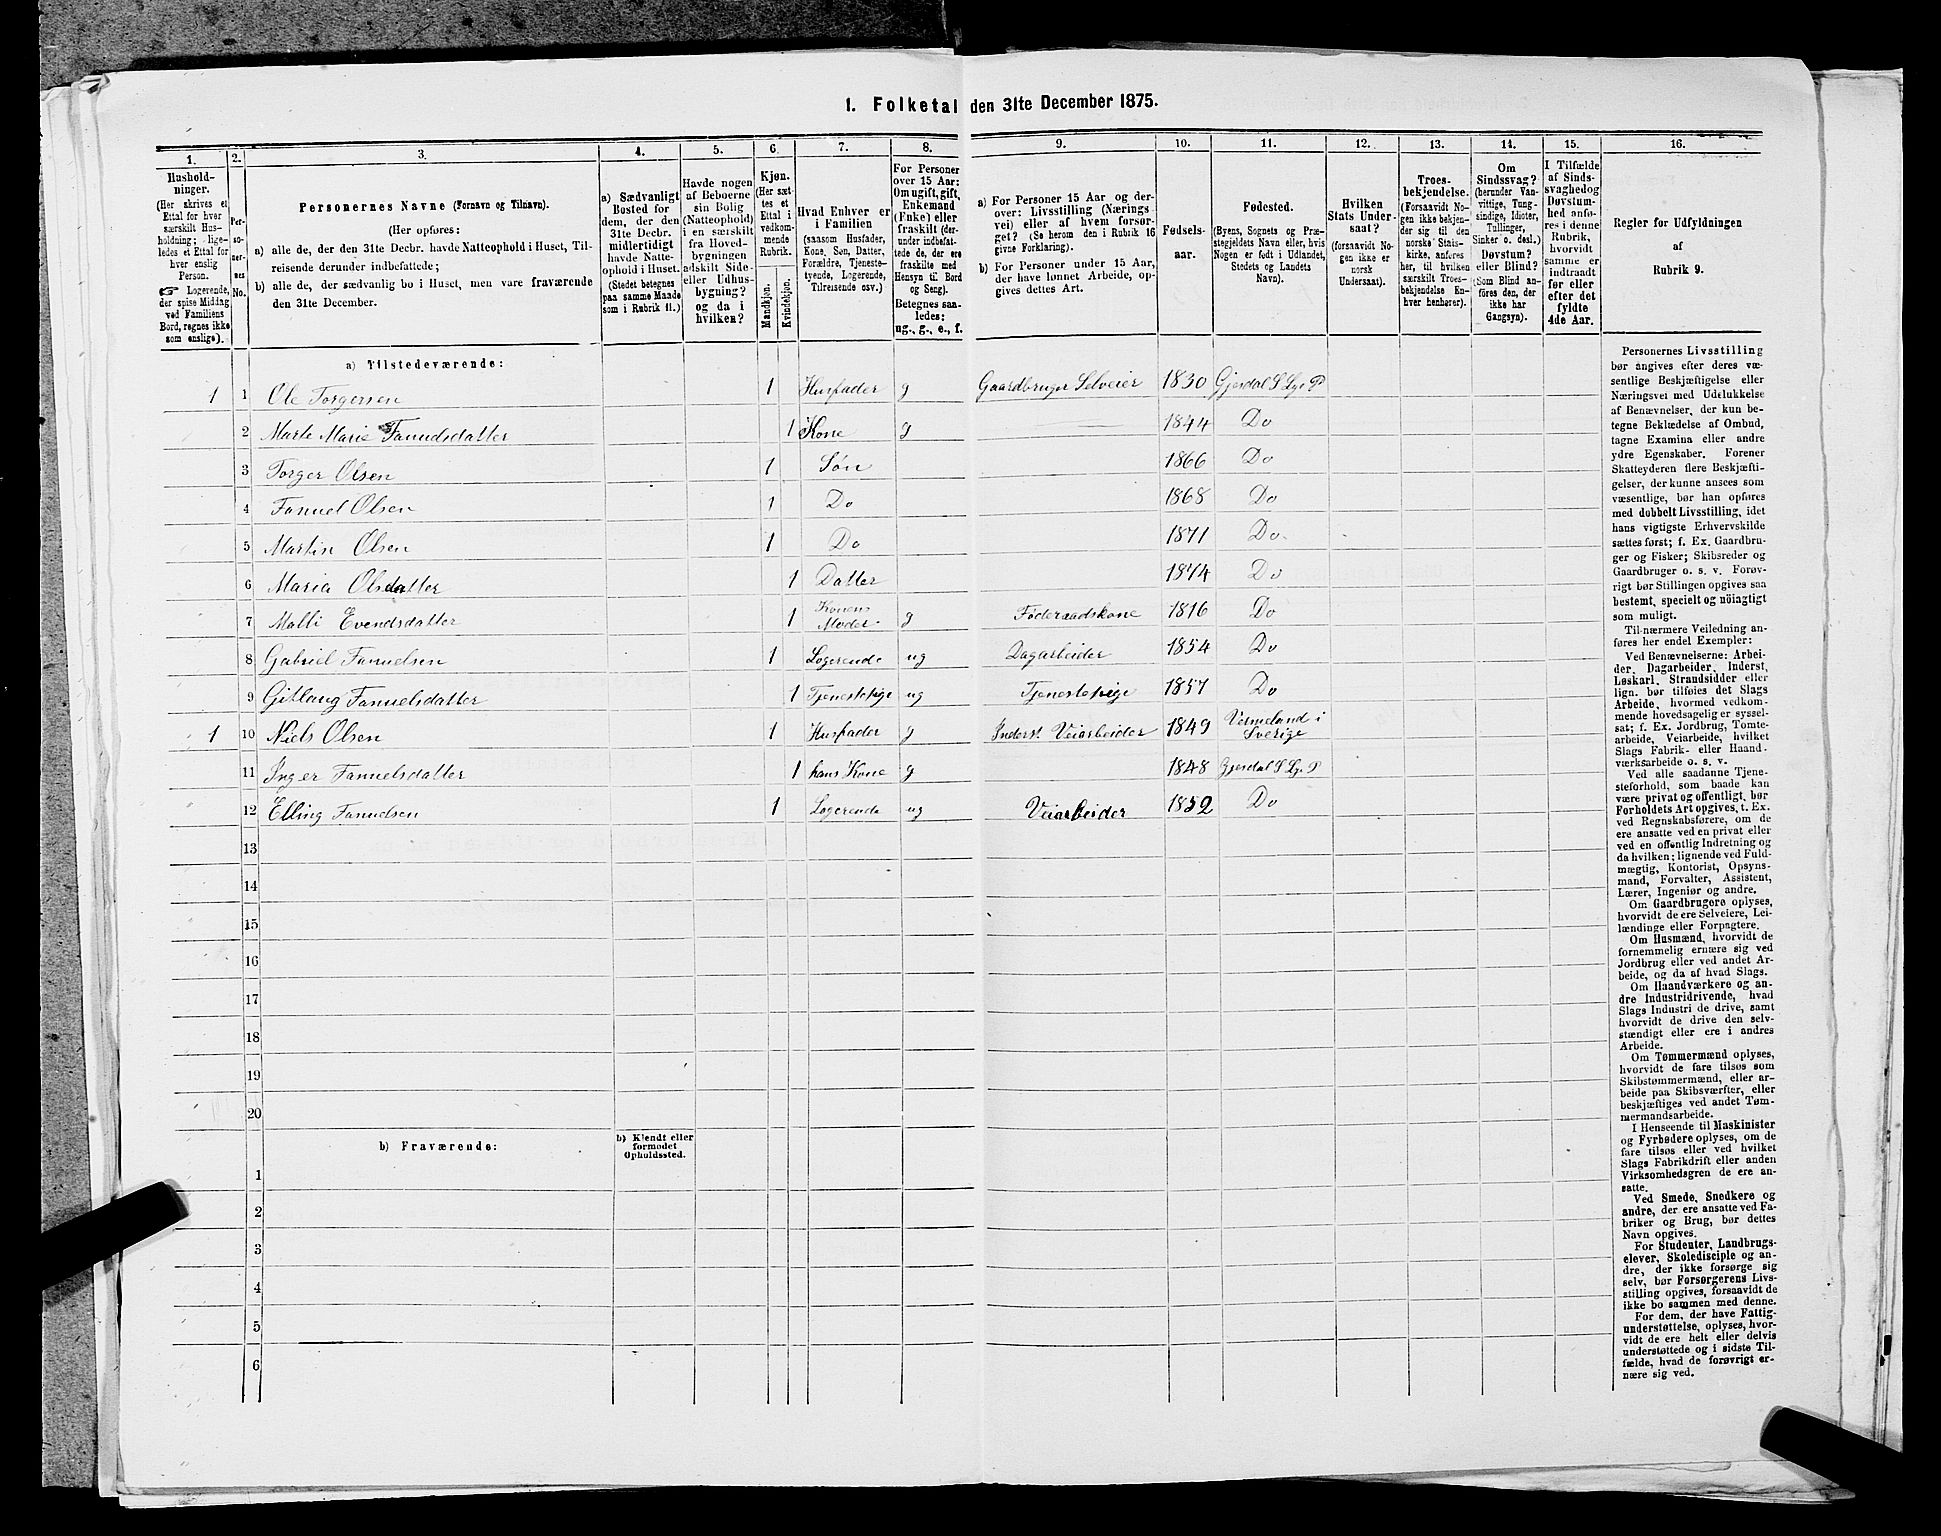 1. Folketal den 31te December 1875.
1. 2. 3. 4. 5. 6. 7. 8. 9. 10. 11. 12. 13. 14. 15. 16.
Hushold-
ninger.
(Her skrives et
Ettal for hver
særskilt Hus-
holdning; lige-
ledes et Ettal for
hver enslig
Person.
☞ Logerende,
der spise Middag
ved Familiens
Bord, regnes ikke
som enslige).
Per-
so-
ner-
nes
No.
Personernes Navne (Fornavn og Tilnavn).
(Her opføres:
a) alle de, der den 31te Decbr. havde Natteophold i Huset, Til-
reisende derunder indbefattede;
b) alle de, der sædvanlig bo i Huset, men vare fraværende
den 31te December.
a) Sædvanligt
Bosted for
dem, der den
31te Decbr.
midlertidigt
havde Natte-
ophold i Huset.
(Stedet betegnes
paa samme Maade
som i Rubrik 11.)
Havde nogen
af Beboerne
sin Bolig
(Natteophold)
i en særskilt
fra Hoved-
bygningen
adskilt Side-
eller Udhus-
bygning?
og da i
hvilken?
Kjøn.
(Her sæt-
tes et
Ettal i
vedkom-
mende
Rubrik.
Mandkjøn.
Kvindekjøn.
Hvad Enhver er
i Familien
(saasom Husfader,
Kone, Søn, Datter,
Forældre, Tjeneste-
tyende, Logerende,
Tilreisende osv.)
For Personer
over 15 Aar:
Om ugift, gift,
Enkemand
(Enke) eller
fraskilt (der-
under indbefat-
tede de, der ere
fraskilte med
Hensyn til Bord
og Seng).
Betegnes saa-
ledes:
ug., g., e., f.
a) For Personer 15 Aar og der-
over: Livsstilling (Nærings-
vei) eller af hvem forsør-
get? (Se herom den i Rubrik 16
givne Forklaring).
b) For Personer under 15 Aar,
der have lønnet Arbeide, op-
gives dettes Art.
Fødsels-
aar.
Fødested.
(Byens, Sognets og Præ-
stegjeldets Navn eller, hvis
Nogen er født i Udlandet,
Stedets og Landets
Navn).
Hvilken
Stats Under-
saat?
(forsaavidt No-
gen ikke er
norsk
Undersaat).
Troes-
bekjendelse.
(Forsaavidt No-
gen ikke bekjen-
der sig til den
norske Stats-
kirke, anføres
her, til hvilken
særskilt Troes-
bekjendelse En-
hver henhører).
Om
Sindssvag?
(herunder Van-
vittige, Tung-
sindige, Idioter,
Tullinger,
Sinker o. desl.)
Døvstum?
eller Blind?
(Som Blind an-
føres den, der
ikke har
Gangsyn).
I Tilfælde
af Sinds-
svaghed og
Døvstum-
hed anfø-
res i denne
Rubrik,
hvorvidt
samme er
indtraadt
før eller
efter det
fyldte
4de Aar.
Regler for Udfyldningen
af
Rubrik 9.
a) Tilstedeværende:
1 1 Ole Torgersen 1 Husfader g Gaardbruger Selveier 1830 Gjesdal S Lye P
2 Marte Marie Fanuelsdatter 1 Kone g 1844 Do
3 Torger Olsen 1 Søn 1866 Do
4 Fanuel Olsen 1 Do 1868 Do
5 Martin Olsen 1 Do 1871 Do
6 Maria Olsdatter 1 Datter 1874 Do
7 Malli Evendsdatter 1 Konens Moder g Føderaadskone 1816 Do
8 Gabriel Fanuelsen 1 Logerende ug Dagarbeider 1854 Do
9 Gitlaug Fanuelsdatter 1 Tjenestepige ug Tjenestepige 1857 Do
1 10 Niels Olsen 1 Husfader g Inderst Veiarbeider 1849 Vermeland i Sverige
11 Inger Fanuelsdatter 1 hans Kone g 1848 Gjesdal S Lye P
12 Elling Fanuelsen 1 Logerende ug Veiarbeider 1852 Do
13
14
15
16
17
18
19
20
b) Fraværende:
b) Kjendt eller
formodet
Opholdssted.
1
2
3
4
5
6
Personernes Livsstilling
bør angives efter deres væ-
sentlige Beskjæftigelse eller
Næringsvei med Udelukkelse
af Benævnelser, der kun be-
tegne Beklædelse af Ombud,
tagne Examina eller andre
ydre Egenskaber. Forener
Skatteyderen flere Beskjæfti-
gelser, der kunne ansees som
væsentlige, bør han opføres
med dobbelt Livsstilling, idet
hans vigtigste Erhvervskilde
sættes først; f. Ex. Gaardbru-
ger og Fisker; Skibsreder og
Gaardbruger o. s. v. Forøv-
rigt bør Stillingen opgives saa
bestemt, specielt og nöiagtigt
som muligt.
Til nærmere Veiledning an-
føres her endel Exempler:
Ved Benævnelserne: Arbei-
der, Dagarbeider, Inderst,
Løskarl, Strandsidder eller
lign. bør tilføies det Slags
Arbeide, hvormed vedkom-
mende hovedsagelig er syssel-
sat; f. Ex. Jordbrug, Tomte-
arbeide, Veiarbeide, hvilket
Slags Fabrik- eller Haand-
værksarbeide o. s. v.
Ved alle saadanne Tjene-
steforhold, som baade kan
være privat og offentligt, bør
Forholdets Art opgives, t. Ex.
ved Regnskabsførere, om de
ere ansatte ved en privat eller
ved en offentlig Indretning og
da hvilken; lignende ved Fuld-
mægtig, Kontorist, Opsyns-
mand, Forvalter, Assistent,
Lærer, Ingeniør og andre.
Om Gaardbrugere oplyses,
hvorvidt de ere Selveiere, Lei-
lændinge eller Forpagtere.
Om Husmænd, hvorvidt de
fornemmelig ernære sig ved
Jordbrug eller ved andet Ar-
beide, og da af hvad Slags.
Om Haandværkere og an-
dre Industridrivende, hvad
Slags Industri de drive, samt
hvorvidt de drive den selv-
stændigt eller ere i andres
Arbeide.
Om Tømmermænd oplyses,
hvorvidt de fare tilsøs som
Skibstømmermænd, eller ar-
beide paa Skibsværfter, eller
beskjæftiges ved andet Tøm-
mermandsarbeide.
I Henseende til Maskinister
og Fyrbødere oplyses, om de
fare tilsøs eller ved hvilket
Slags Fabrikdrift eller anden
Virksomhedsgren de ere an-
satte.
Ved Smede, Snedkere og
andre, der ere ansatte ved Fa-
briker og Brug, bør dettes
Navn opgives.
For Studenter, Landbrugs-
elever, Skoledisciple og an-
dre, der ikke forsørge sig
selv, bør Forsørgerens Livs-
stilling opgives, forsaavidt de
ikke bo sammen med denne.
For dem, der have Fattig-
understøttelse, oplyses, hvor-
vidt de ere helt eller delvis
understøttede og i sidste Til-
fælde, hvad de forøvrigt er-
nære sig ved.